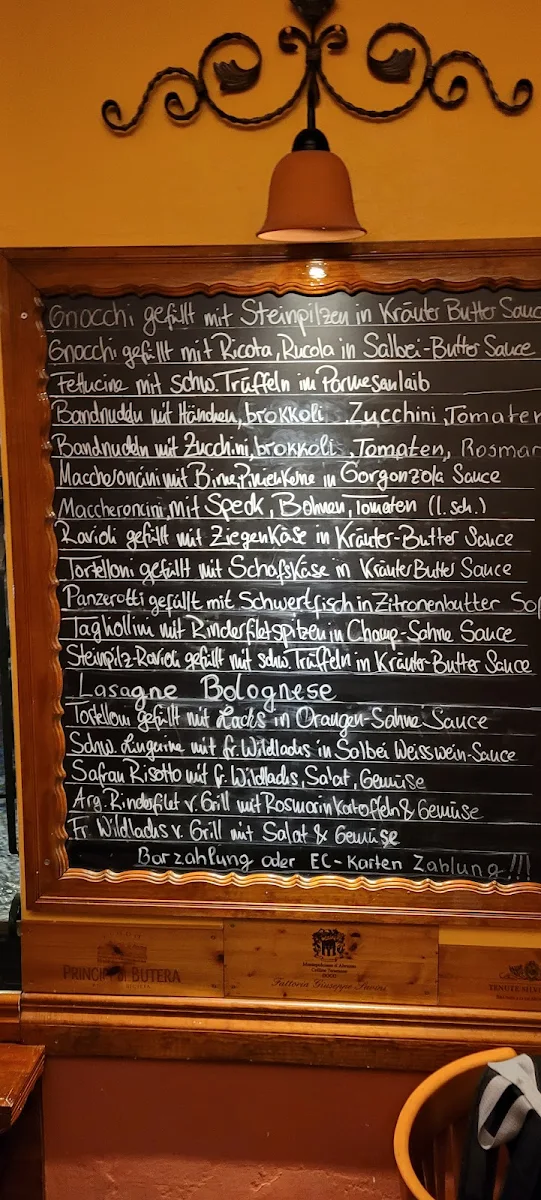 Gnocchi gefüllt mit Steinpilzen in Kräuter Butter Sauc
Gnocchi gefüllt mit Ricota, Rucola in Salbei-Butter Sauce
Fettucine mit schw. Trüffeln im Parmesanlaib
Bandnudeln mit Hänchen, brokkoli, Zucchini, Tomaten
Bandnudeln mit Zucchini, brokkoli, Tomaten, Rosmar
Maccheroncini mit Birne, Pinienkerne in Gorgonzola Sauce
Maccheroncini mit Speck, Bohnen, Tomaten (l. sch.)
Ravioli gefüllt mit Ziegenkäse in Kräuter-Butter Sauce
Tortelloni gefüllt mit Schafskäse in Kräuter Butter Sauce
Panzerotti gefüllt mit Schwertfisch in Zitronenbutter So
Tagliollini mit Rinderfiletspitzen in Champ-Sahne Sauce
Steinpilz-Ravioli gefüllt mit schw. Trüffeln in Kräuter-Butter Sauce
Lasagne Bolognese
Tortelloni gefüllt mit Lachs in Orangen-Sahne Sauce
Schw. Linguine mit fr. Wildlachs in Salbei Weisswein-Sauce
Safran Risotto mit fr. Wildlachs, Salat, Gemüse
Arg. Rinderfilet v. Grill mit Rosmarinkartoffeln & Gemüse
Fr. Wildlachs v. Grill mit Salat & Gemüse
Barzahlung oder EC-Karten Zahlung!!!
PRINCIPI di BUTERA
Fattoria Giuseppe Savini
TENUTE